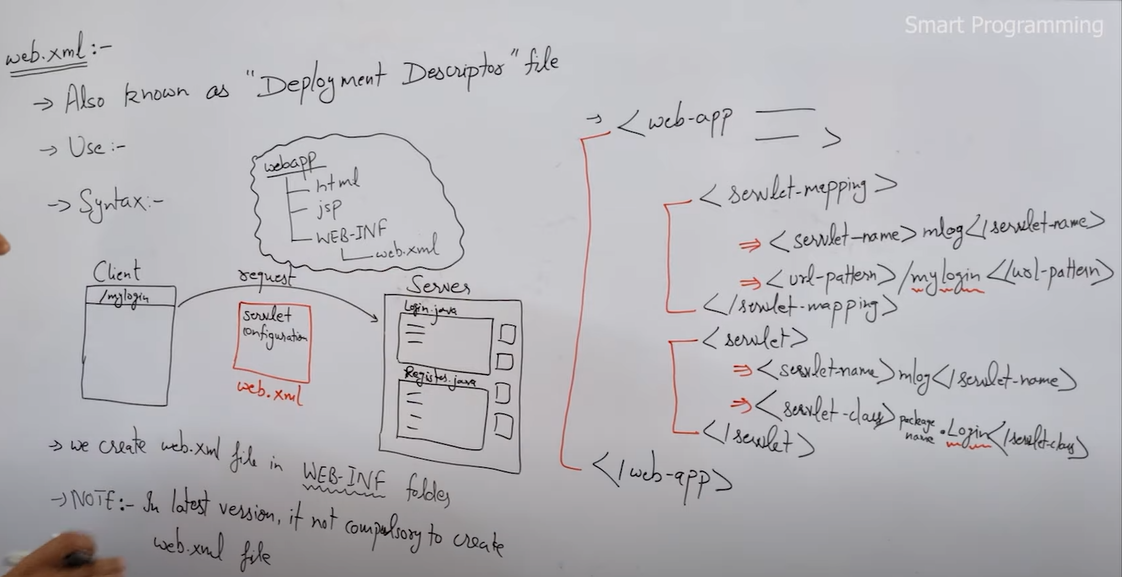 Smart Programming
web.xml:-
→ Also known as "Deployment Descriptor" file
→ Use:-
→ Syntax:-
webapp
html
jsp
WEB-INF
web.xml
Client
/mylogin
request
servlet
configuration
web.xml
Server
Login.java
Register.java
→ we create web.xml file in WEB-INF folder
→ NOTE:- In latest version, it not compulsory to create
web.xml file
→ <web-app
>
<servlet-mapping>
⇒ <servlet-name>mlog</servlet-name>
⇒ <url-pattern>/mylogin</url-pattern>
</servlet-mapping>
<servlet>
⇒ <servlet-name>mlog</servlet-name>
⇒ <servlet-class>package name.Login</servlet-class>
</servlet>
</web-app>